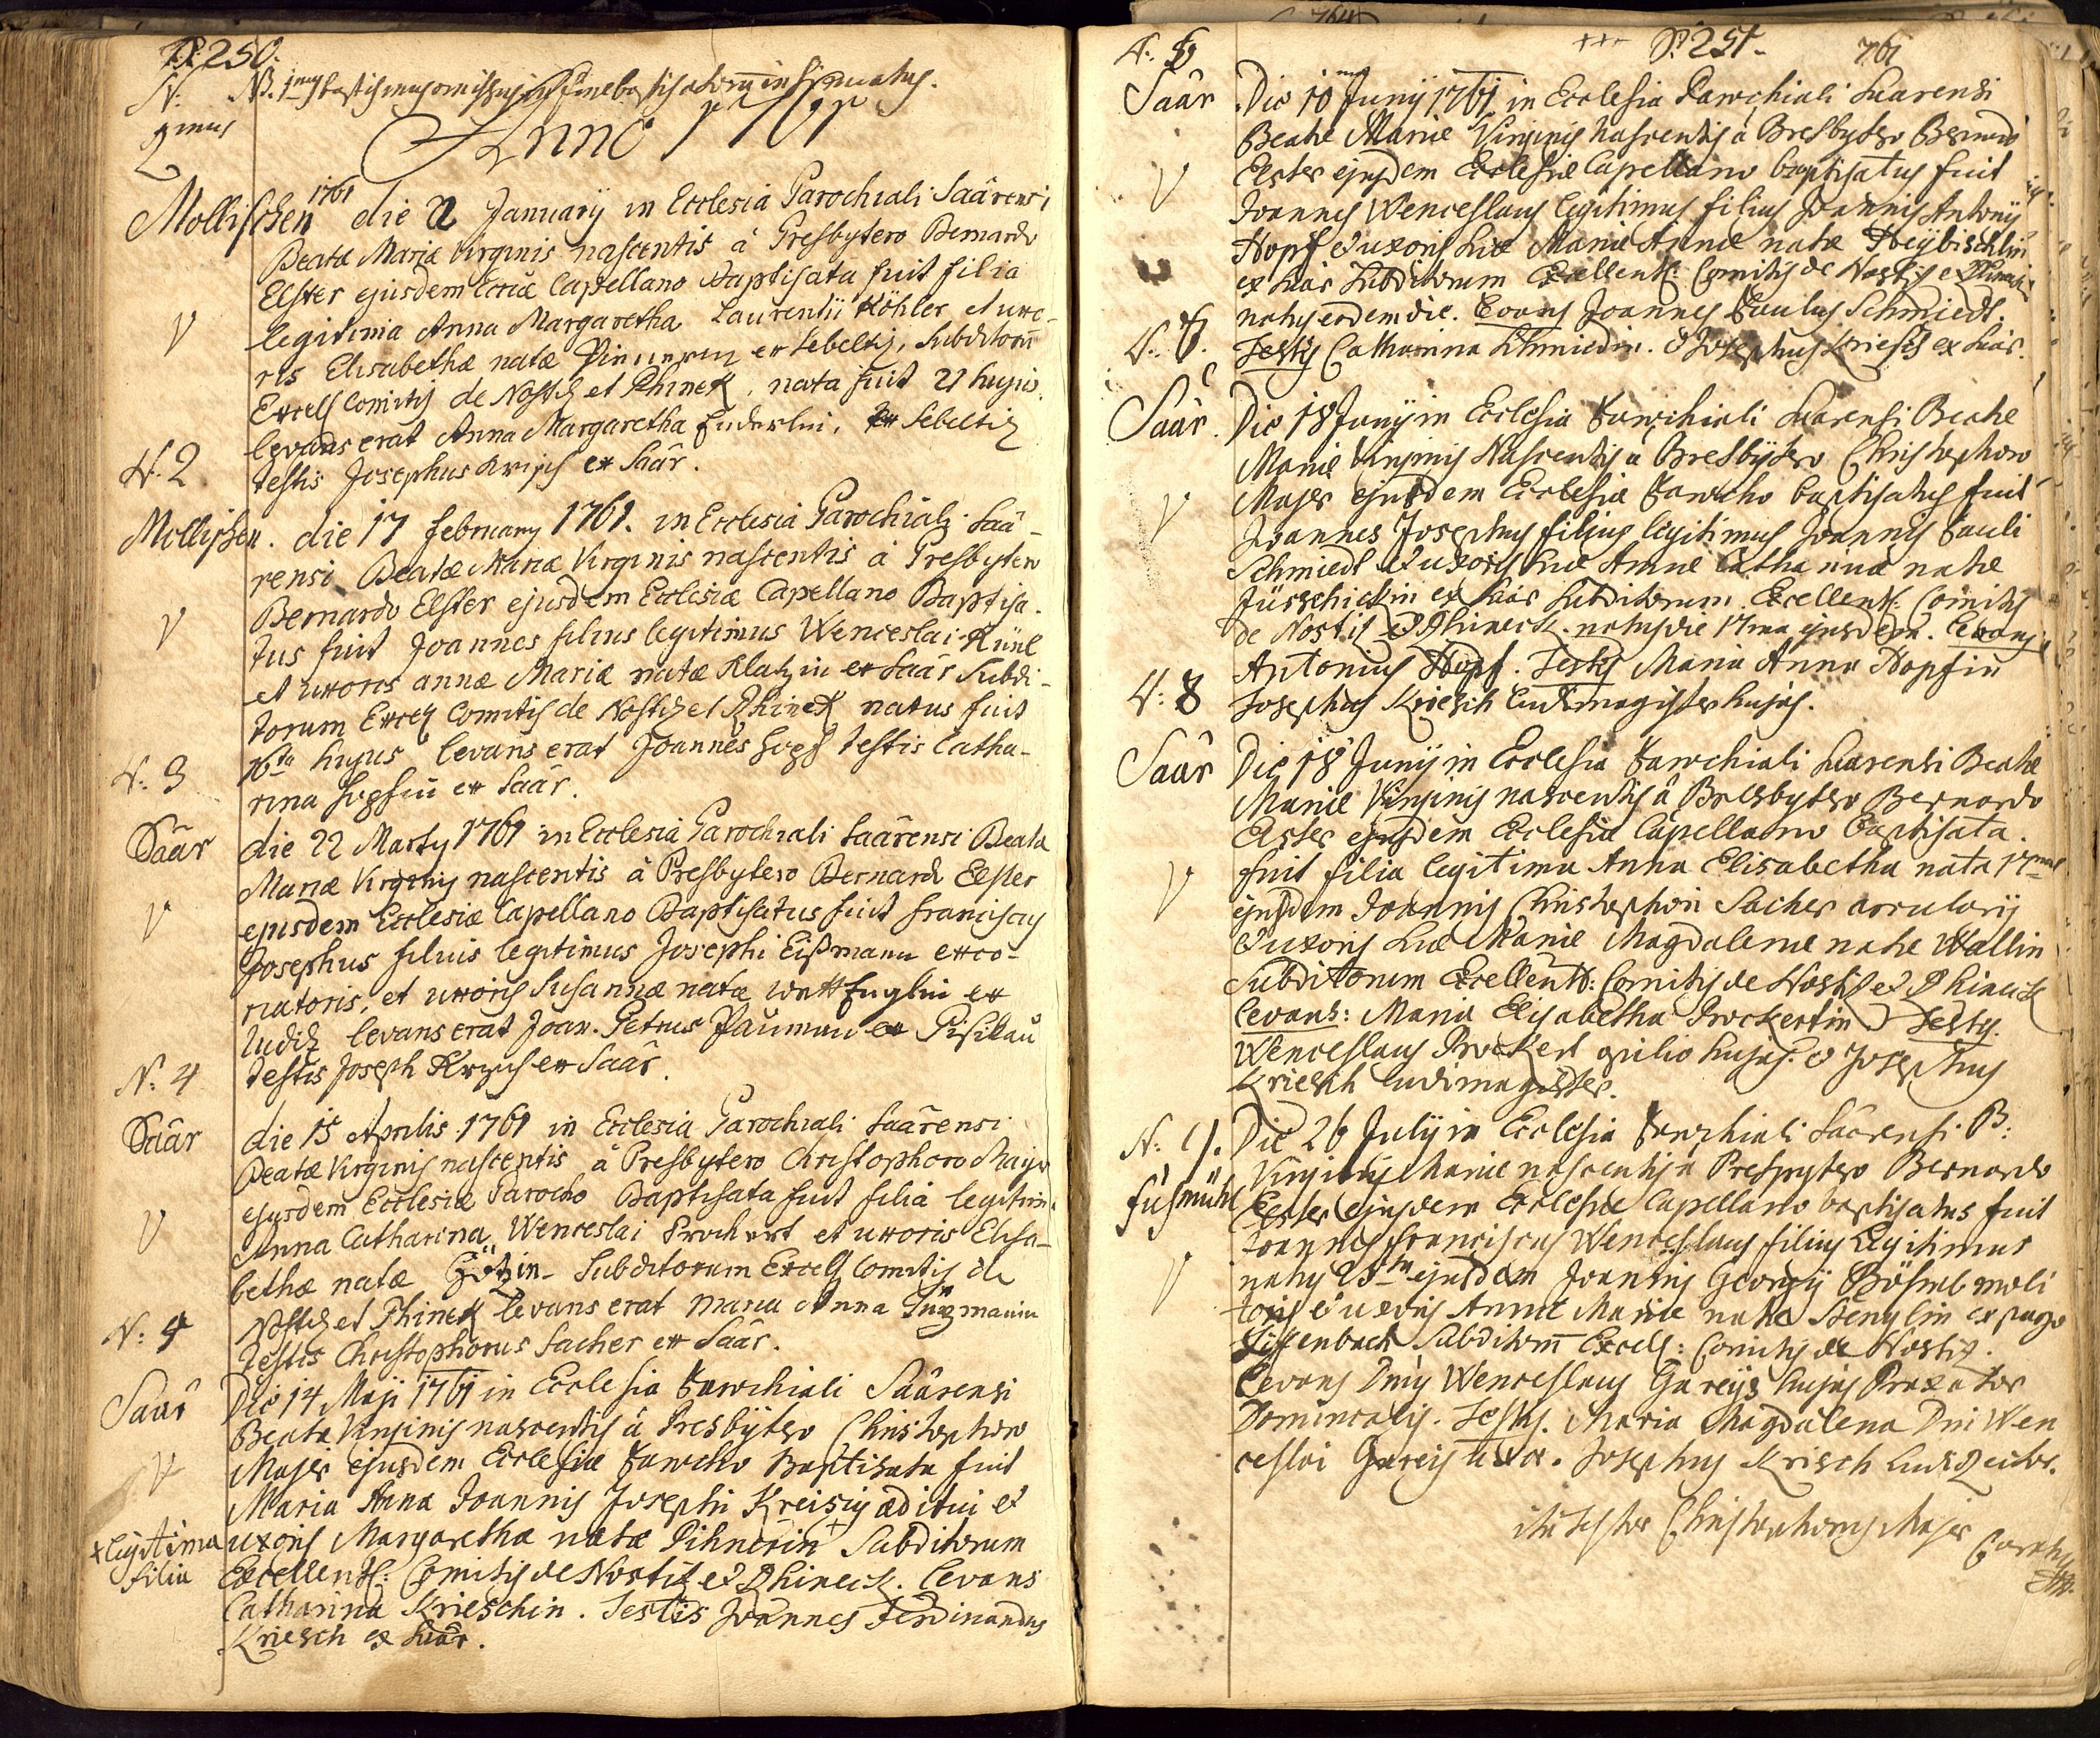 P. 250.
N. NB. 1mus baptismus in fine baptisatorum insinuatus.
Anno 1761
Mollischen 1761 die 22 January in Ecclesia Parochiali Saârensi
Beatæ Mariæ Virginis nascentis à Presbytero Bernardo
Elster ejusdem Eccliæ Capellano Baptisata fuit filia
V legitima Anna Margaretha Laurentii Köhler et uxo-
ris Elisabethæ natæ ex Sebeltiz, Subditorū
Excell Comitis de Nostiz et Rhinek, nata fuit 21 hujus.
levans erat Anna Margaretha Enderlin, ex Sebeltiz
N. 2 testis Josephus Krisch ex Saâr.
Mollischen. die 17 february 1761. in Ecclesia Parochiali Saâ-
rensi Beatæ Mariæ Virginis nascentis à Presbytero
V Bernardo Elster ejusdem Ecclesiæ Capellano Baptisa-
tus fuit Joannes filius legitimus Wenceslai Künl
et uxoris annæ Mariæ natæ Klatzin ex Saâr Subdi-
torum Excell Comitis de Nostiz et Rhinek natus fuit
16ta hujus levans erat Joannes Hopf testis Catha-
N: 3 rina Hopfin ex Saâr.
Saâr die 22 Marty 1761 in Ecclesia Parochiali Saârensi Beata
Mariæ Virginis nascentis à Presbytero Bernardo Elster
V ejusdem Ecclesiæ Capellano Baptisatus fuit franciscus
Josephus filius legitimus Josephi Eißmann exco-
riatoris, et uxoris Susannæ natæ Englin ex
Ludiz levans erat Joan. Petrus Pauman ex
N: 4 testis Joseph Krisch ex Saâr.
Saâr die 15 Aprilis 1761 in Ecclesia Parochiali Saârensi
Beatæ Virginis nascentis à Presbytero Christophoro Majer
ejusdem Ecclesiæ Parocho Baptisata fuit filia legitim.
V Anna Catharina Wenceslai Prockert et uxoris Elisa-
bethæ natæ Götzin Subditorum Excell Comitis de
Nostiz et Rhinek levans erat Maria Anna
N: 5 testis Christophorus Sacher ex Saâr.
Saâr Die 14 Maji 1761 in Ecclesia Parochiali Saârensi
Beatæ Virginis nascentis à Presbÿtero Christophoro
V Majer ejusdem Ecclesiæ Parocho Baptisata fuit
Maria Anna Joannis Josephi Kreisig æditui et
+ legitima uxoris Margarethæ natæ Pihnerin + Subditorum
filia Excellent: Comitis de Nostiz et Rhineck. Levans
Catharina Krieschin. Testis Joannes Ferdinandus
Kriesch ex Saâr.
+++ P: 251. 761
N. 6
Saâr Die 10 Junÿ 1761 in Ecclesia Parochiali Saarensi
Beatæ Mariæ Virginis Nascentis à Presbytero Bernardo
V Elster ejusdem Ecclesiæ Capellano baptisatus fuit
Joannes Wenceslaus legitimus filius Joannis Antonÿ
Hopf et uxoris suæ Mariæ Annæ natæ
ex Saar Subditorum Excellent: Comitis de Nostiz et
natus eodem die. Levans Joannes Paulus Schmiedt.
Testis Catharina Schmiedin. & Josephus Kriesch ex Saar.
Saâr. Die 18 Junÿ in Ecclesia Parochiali Saarensi Beatæ
Mariæ Virginis Nascentis a Presbÿtero Christophoro
V Majer ejusdem Ecclesiæ Parocho baptisatus fuit
Joannes Josephus filius legitimus Joannis Pauli
Schmiedt et uxoris suæ Annæ Catharinæ natæ
ex Saar Subditorum Excellent: Comitis
de Nostiz et Rhineck. natus die 17ma ejusdem. Levans
Antonius Hopf. Testis Maria Anna Hopfin
N: 8 Josephus Kriesch Ludimagister hujas.
Saâr Die 18 Junÿ in Ecclesia Parochiali Saarensi Beatæ
Mariæ Virginis nascentis â Presbytero Bernardo
Elster ejusdem Ecclesiæ Capellano baptisata.
V fuit filia legitima Anna Elisabetha nata 17ma
ejusdem Joannis Christophori Sacher
et uxoris suæ Mariæ Magdalenæ natæ Wallin
Subditorum Excellent: Comitis de Nostiz et Rhineck
Levans: Maria Elisabetha Prockertin. Testis
Wenceslaus Prockert opilio hujas. & Josephus
Kriesch Ludimagister.
N: 9. Die 26 Julÿ in Ecclesia Parochiali Saârensi B:
Virginis Mariæ nascentis a Presbytero Bernardo
Elster ejusdem Ecclesiæ Capellano baptisatus fuit
Joannes franciscus Wenceslaus filius Legitimus
V natus 25ta ejusdem Joannis Georgÿ Böhml moli
toris et uxoris Annæ Mariæ natæ Stenglin ex pago
Subditorū Excell: Comitis de Nostiz.
Levans Dnus Wenceslaus Gareys hujas
Dominicalis. Testis. Maria Magdalena Dni Wen
ceslai Gareis uxor. Josephus Krisch Ludirector.
ita testor Christophorus Majer